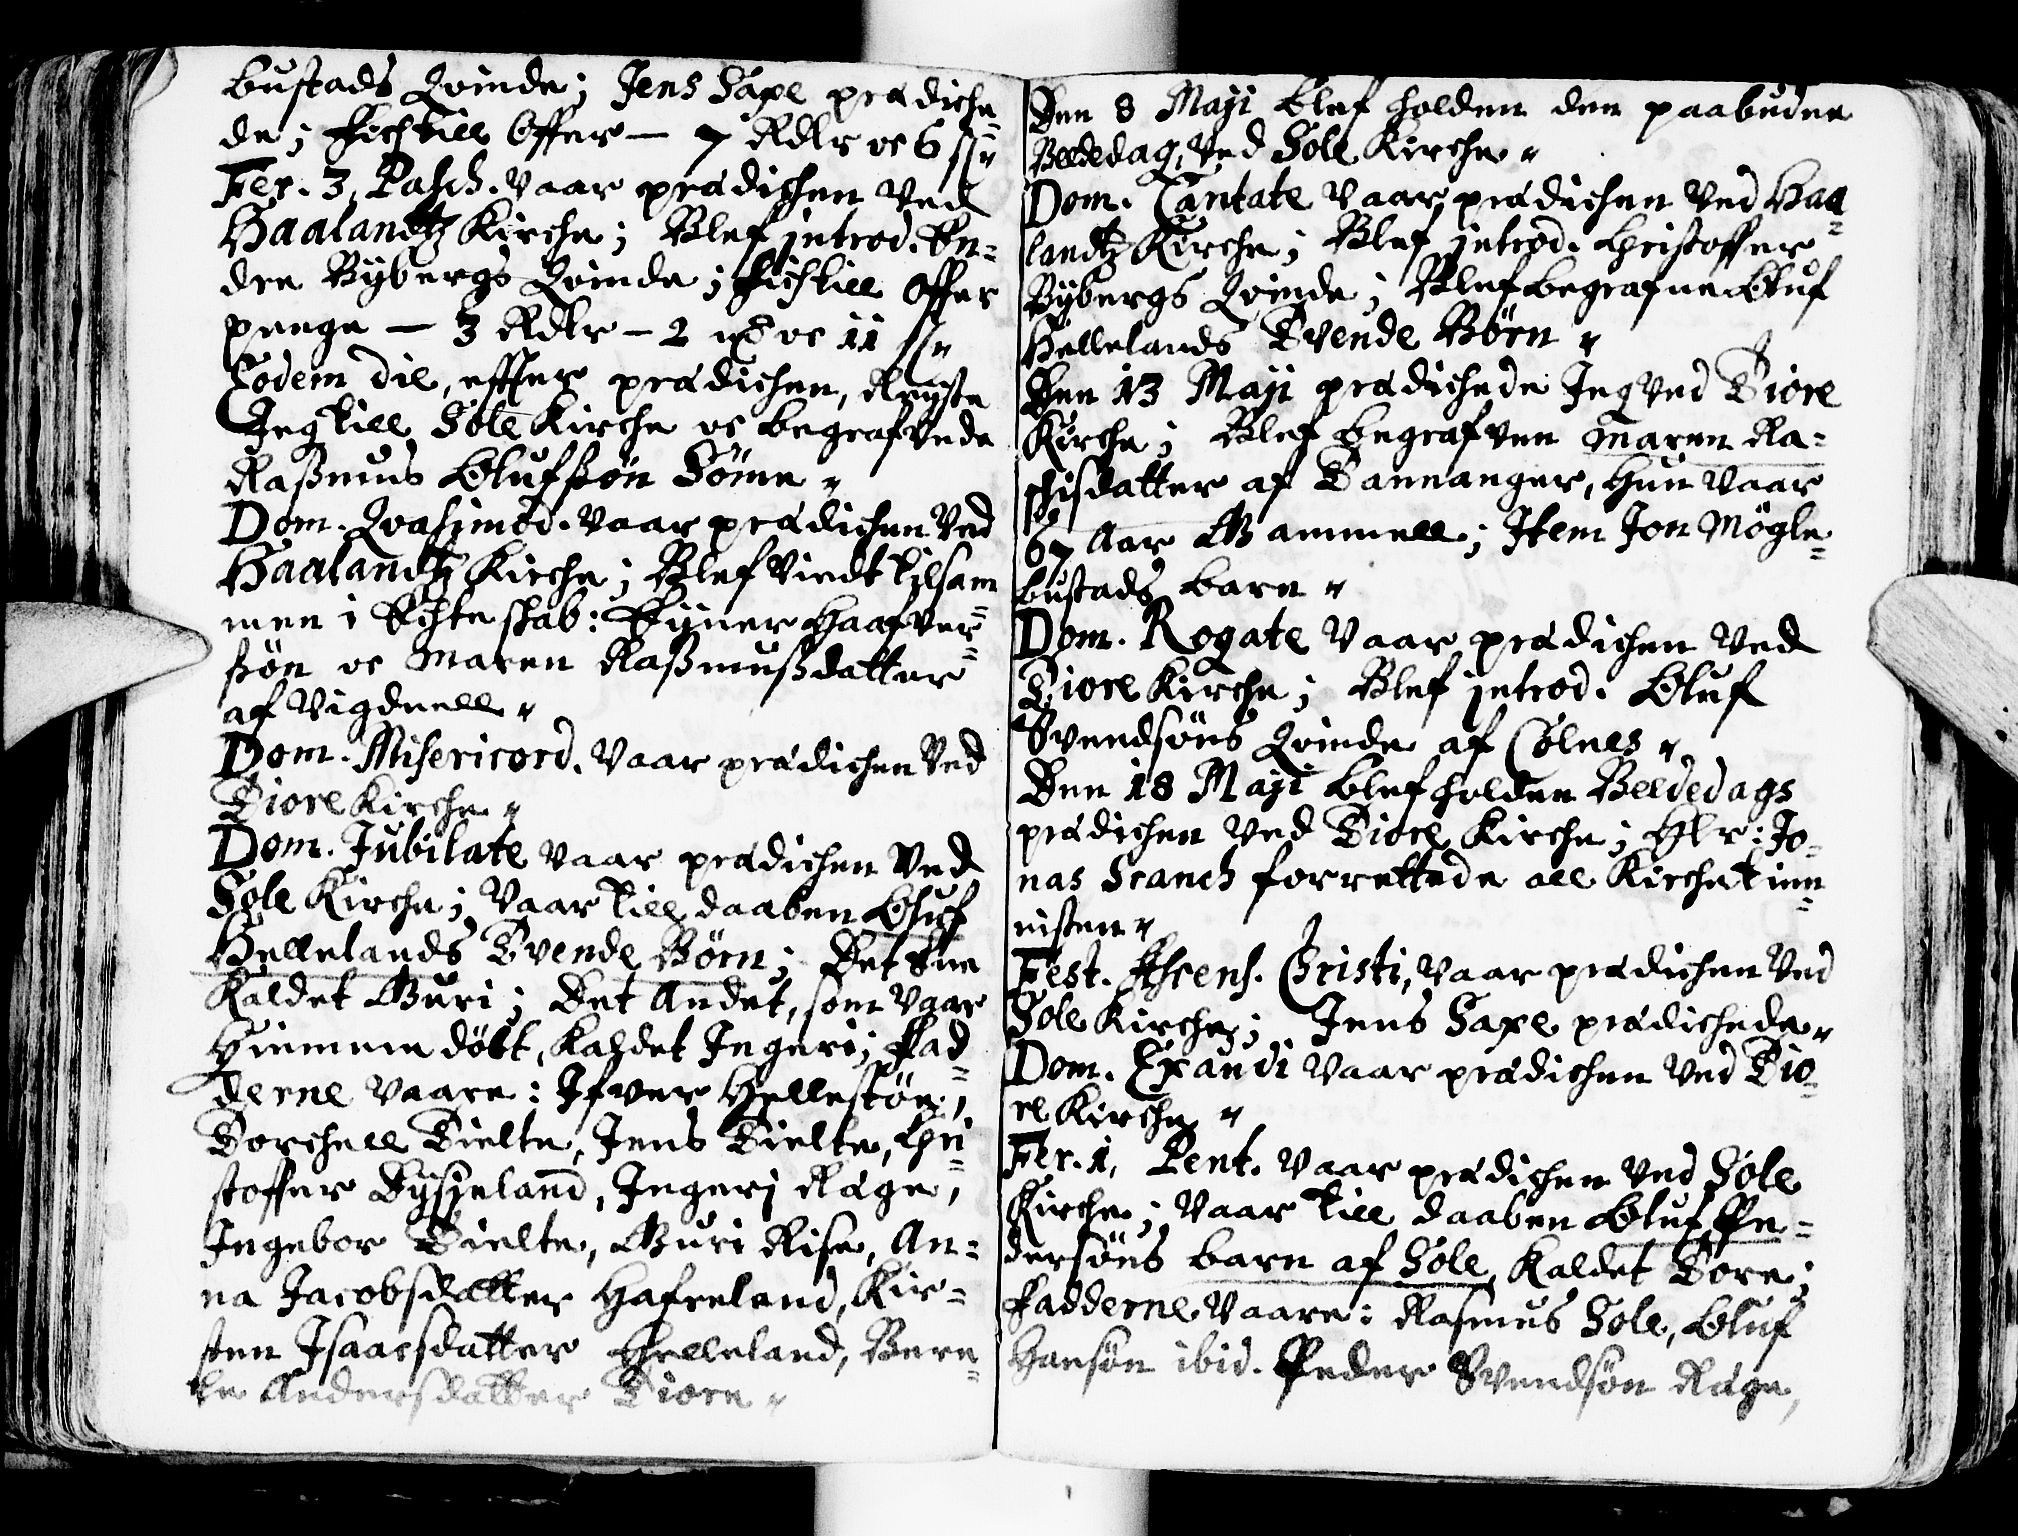 bustads Qvinde; Jens Saxe prædiche=
de; fich till Offer — 7 Rdlr oc 6 ss
Fer. 3, Pasch. vaar prædichen ved
Haalandtz Kirche; Blef introd. En=
dre Bybergs Qvinde; fich till Offer
penge — 3 Rdlr — 2 oc 11 ss
Eodem die, effter prædichen, Reyste
Jeg till Sole Kirche oc begrafvede
Rasmus Olufsøn Søme
Dom. Qvasimod. vaar prædichen ved
Haalandtz Kirche; Blef viedt tilsam=
men i Echteskab: Ejner Haafver=
søn oc Maren Rasmusdatter
af Vigdnell
Dom. Misericord. vaar prædichen ved
Tiore Kirche
Dom. Jubilate vaar prædichen ved
Sole Kirche; vaar till daaben Oluf
Hellelands Tvende Børn; Det Ene
Kaldet Guri; Det Andet, som vaar
Hiemme døbt, kaldet Jngeri; Fad=
derne vaare: Jfver Hellestøe,
Torchell Tielte, Jens Tielte, Chri=
stoffer Tysjeland, Jngerj Ræge,
Jngebor Tielte, Guri Rise, An=
na Jacobsdatter Hafreland, Kir=
sten Jsaacsdatter Helleland, Bere=
te Andersdatter Tiore
Den 8 Maji blef holden den paabudne
Beededag, ved Sole Kirche
Dom. Cantate vaar prædichen ved Haa=
landtz Kirche; Blef introd. Christoffer
Bybergs Qvinde; Blef begrafne Oluf
Hellelands Tvende Børn
Den 13 Maji prædichede Jeg ved Tiore
Kirche; Blef begrafven Maren Ra=
chisdatter af Tannanger, Hun vaar
67 Aar Gammell; Jtem Jon Møgle=
bustads barn
Dom. Rogate vaar prædichen ved
Tiore Kirche; Blef introd. Oluf
Svendsøns Qvinde af Colnes
Den 18 Maji blef holden Beededags
prædichen ved Tiore Kirche; Hlr: Jo=
nas Scanch forrettede all Kirchetien=
nisten
Fest. Ascens. Christi, vaar prædichen ved
Sole Kirche; Jens Saxe prædichede
Dom. Exaudi vaar prædichen ved Tio=
re Kirche
Fer. 1, Pent. vaar prædichen ved Sole
Kirche; vaar till daaben Oluf Pe=
dersøns barn af Sole, Kaldet Tore;
Fadderne vaare: Rasmus Sole, Oluf
Hansøn ibid. Peder Svendsøn Ræge,